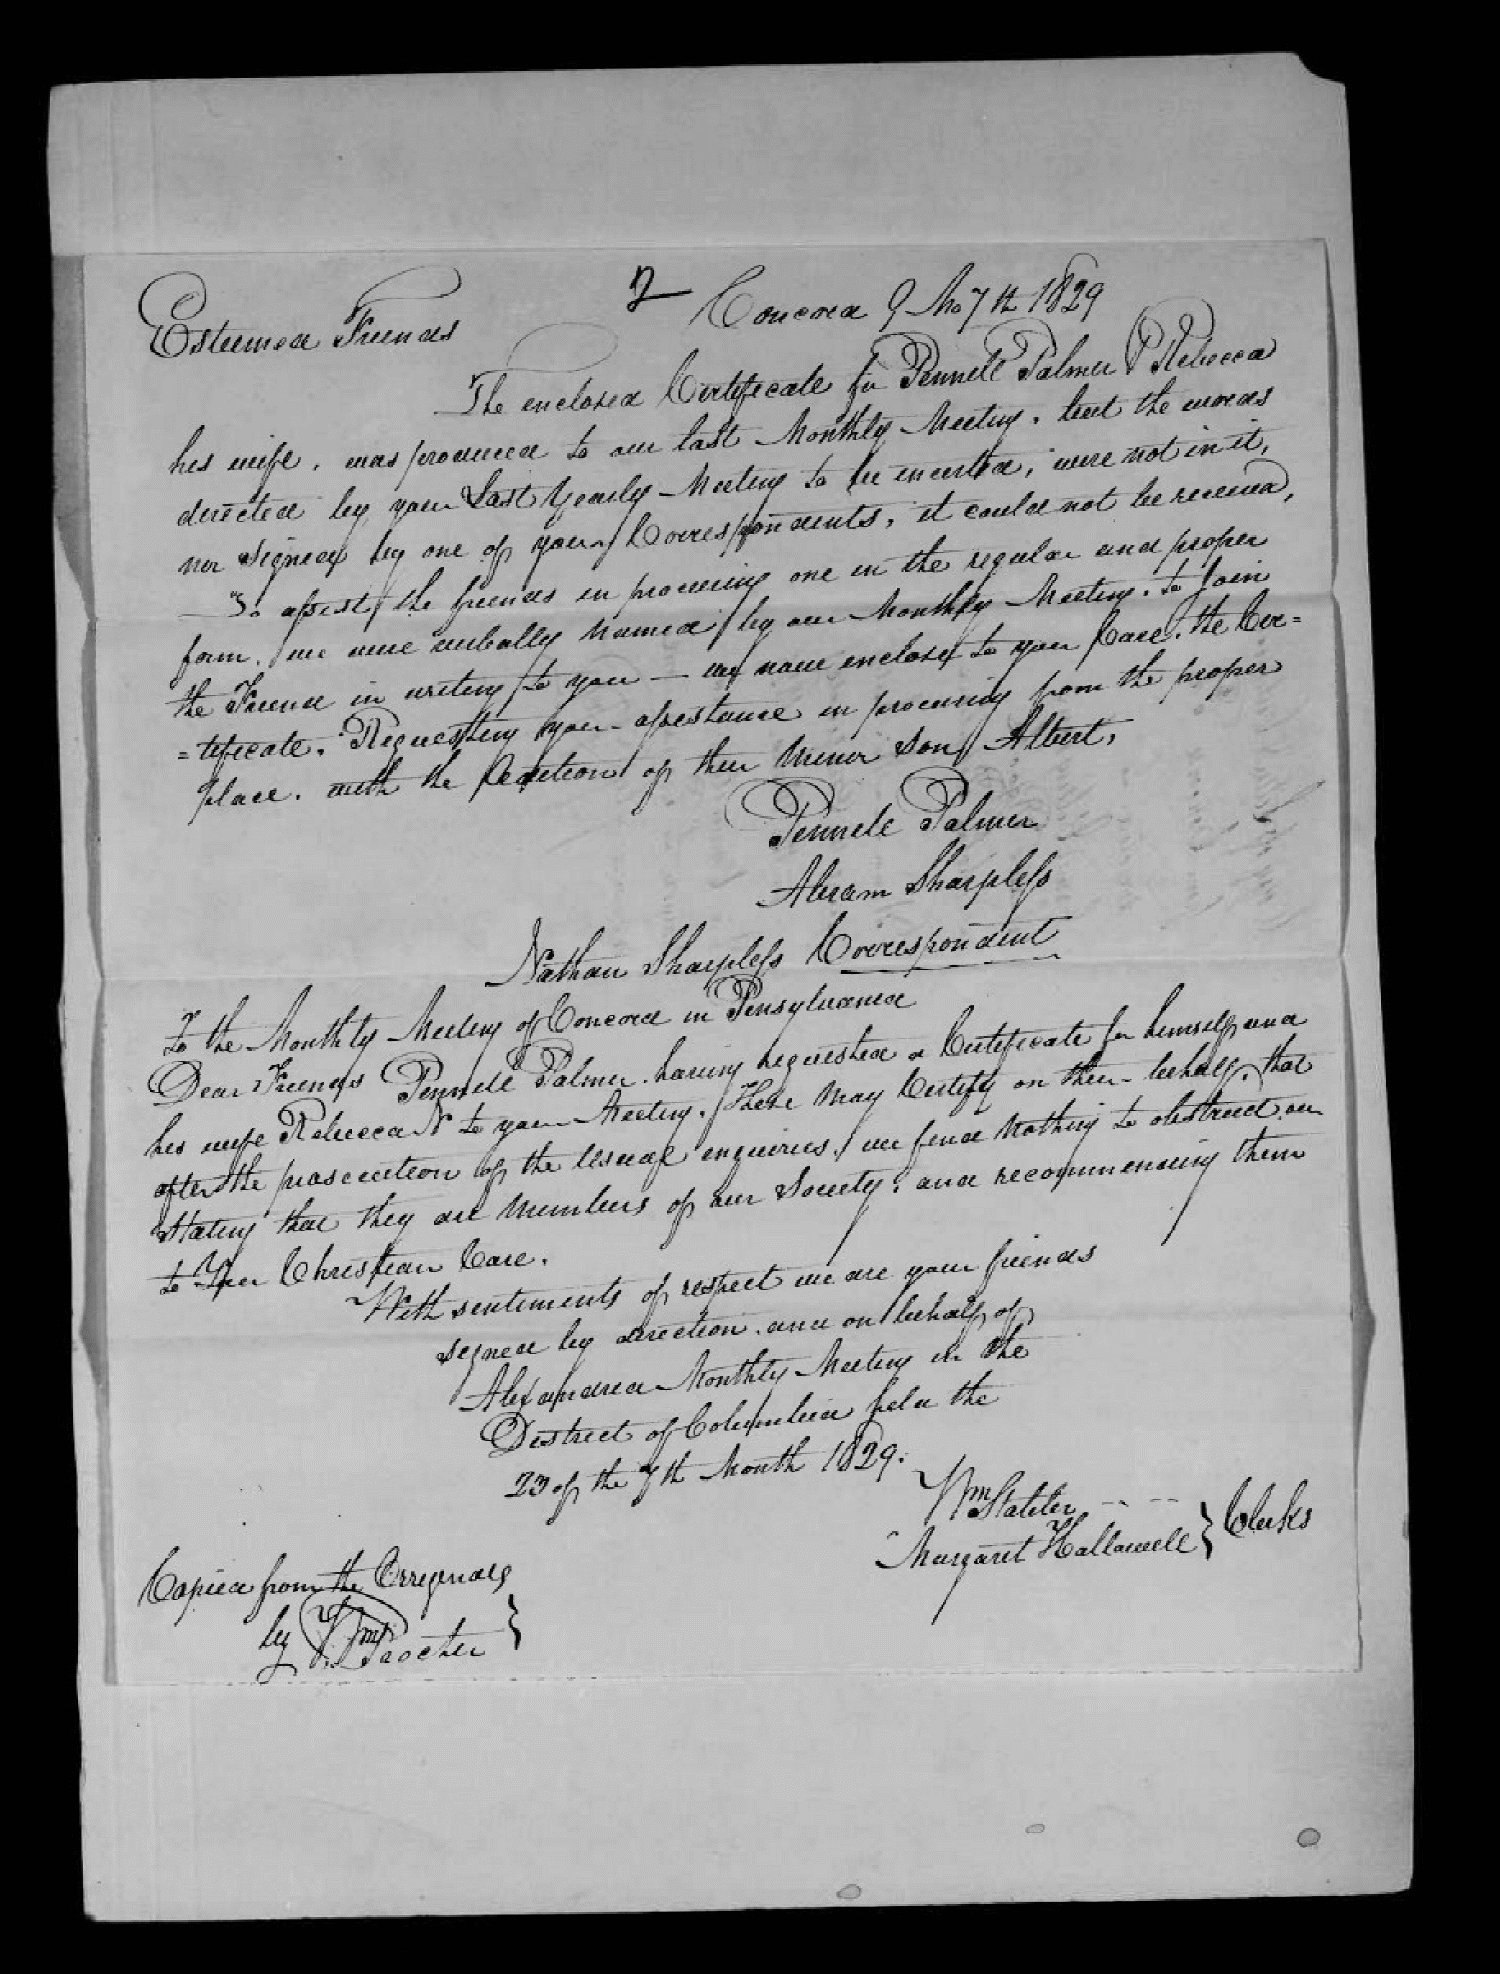 2
Concord 9 Mo 7th 1829
Esteemed Friends
The enclosed Certificate for Pennell Palmer & Rebecca
his wife, was produced to our last Monthly Meeting, but the words
directed by your Last Yearly Meeting to be incerted, were not in it,
nor signed by one of your Correspondents, it could not be received,
To assist the friends in procuring one in the regular and proper
form, we were verbally named by our Monthly Meeting, to Join
the Friend in writing to you — we now enclose to your Care, the Cer=
=tificate, Requesting your assistance in procuring from the proper
place, with the addition of their minor son Albert,
Pennell Palmer
Abram Sharpless
Nathan Sharpless Correspondent
To the Monthly Meeting of Concord in Pensylvania
Dear Friends Pennell Palmer having requested a Certificate for himself and
his wife Rebecca N to your Meeting. These may Certify on their behalf, that
after the prosecution of the usual enquiries, we find nothing to obstruct our
stating that they are members of our Society, and recommending them
to Your Christian Care.
With sentiments of respect we are your friends
signed by direction and on behalf of
Alexandria Monthly Meeting in the
District of Columbia held the
23 of the 7th Month 1829.
Wm Stabler
Margaret Hallowell } Clerks
Copied from the Orreginals
by Wm Procter }